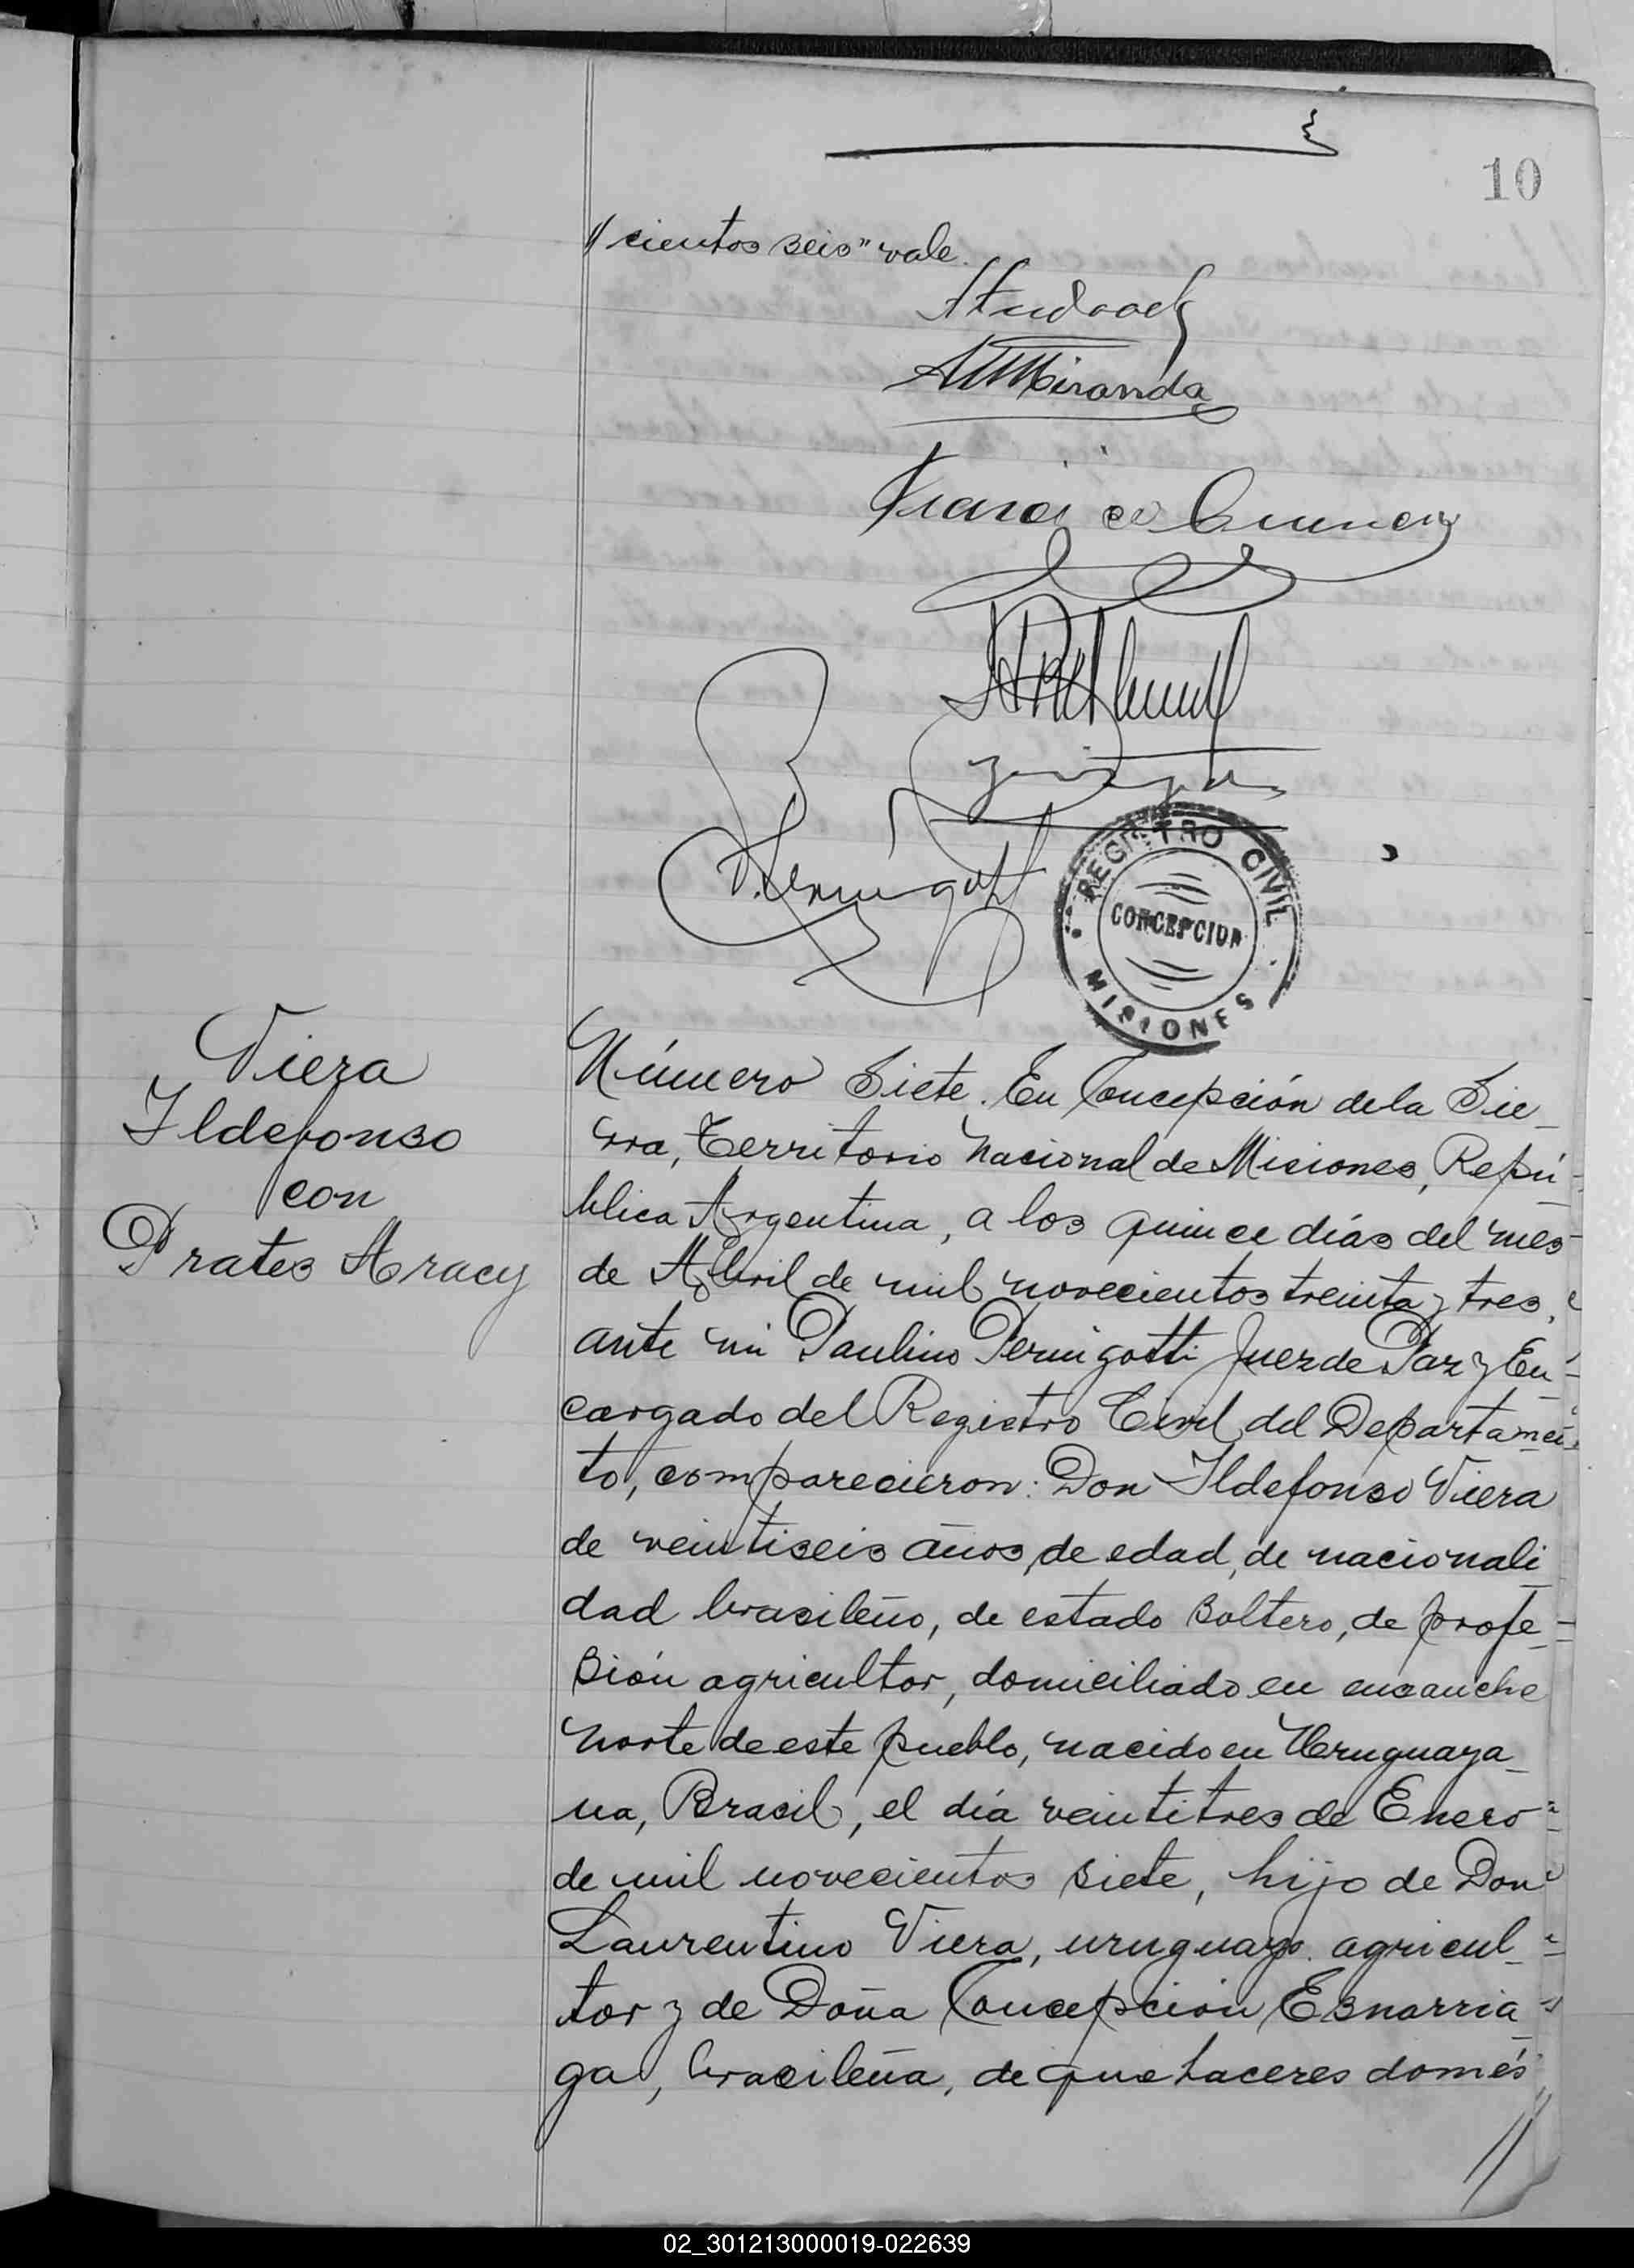 10
// cientos seis" vale.
Miranda
REGISTRO CIVIL
CONCEPCION
MISIONES
Viera
Ildefonso
con
Prates Aracy
Número Siete. En Concepción de la Sie_
rra, Territorio Nacional de Misiones, Repú_
blica Argentina, a los quince días del mes
de Abril de mil novecientos treinta y tres,
ante mi Paulino Pernigotti Juez de Paz y En_
cargado del Registro Civil del Departamen_
to, comparecieron: Don Ildefonso Viera
de veintiseis años, de edad, de nacionali_
dad brasileño, de estado soltero, de profe_
sión agricultor, domiciliado en ensanche
Norte de este pueblo, nacido en Uruguaya_
na, Brasil, el día veintitres de Enero
de mil novecientos siete, hijo de Don
Laurentino Viera, uruguayo. agricul_
tor y de Doña Concepción Esnarria_
ga, brasileña, de quehaceres domés
//
02_301213000019-022639